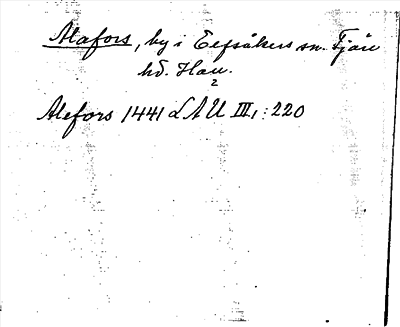 Alafors, by i Eefsåkers sn. Fjäre
hd. Hall.
2
Alefors 1441 LAU III,:220